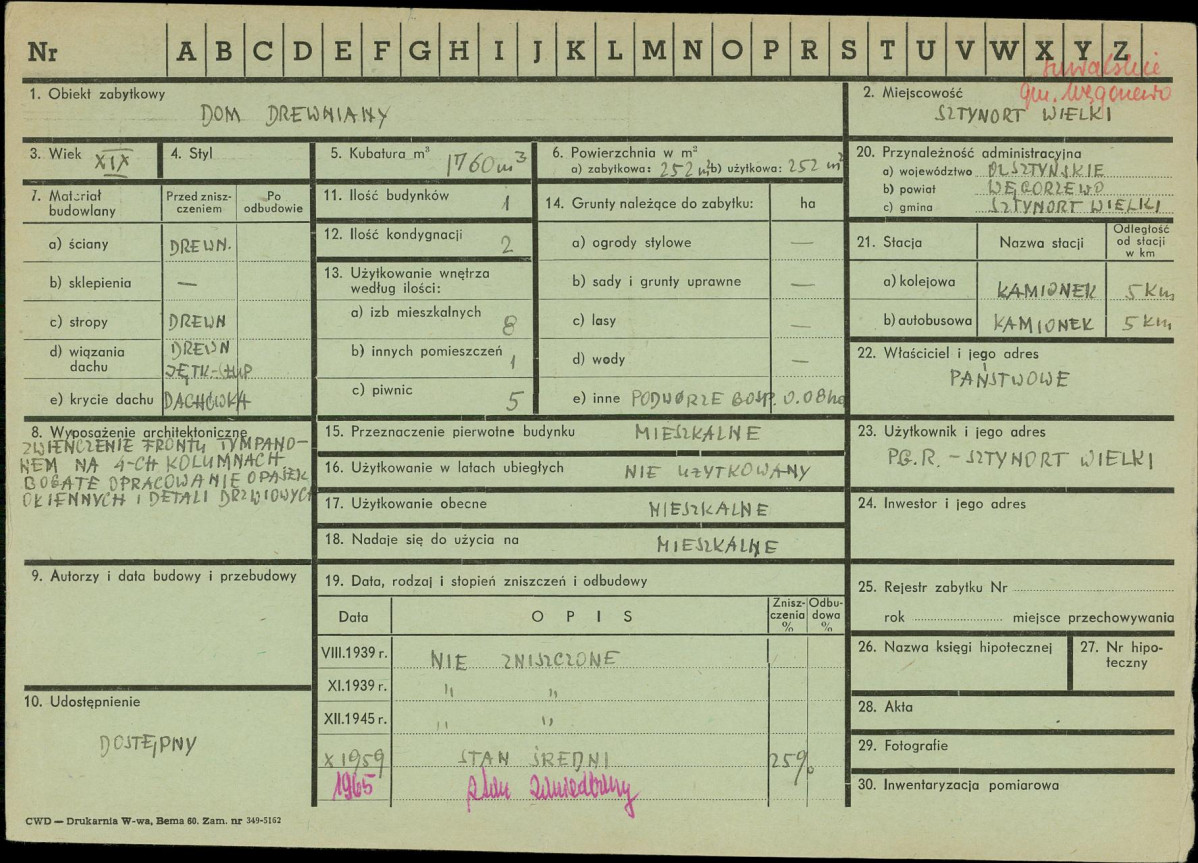 Nr A B C D E F G H I J K L M N O P R S T U V W X Y Z
suwalskie
gm. Węgorzewo
1. Obiekt zabytkowy
DOM DREWNIANY
2. Miejscowość
SZTYNORT WIELKI
3. Wiek XIX
4. Styl
5. Kubatura m³ 1760 m³
6. Powierzchnia w m²
a) zabytkowa: 252 m² b) użytkowa: 252 m²
20. Przynależność administracyjna
a) województwo OLSZTYŃSKIE
b) powiat WĘGORZEWO
c) gmina SZTYNORT WIELKI
7. Materiał budowlany
Przed znisz-
czeniem
Po
odbudowie
a) ściany DREWN.
b) sklepienia —
c) stropy DREWN
d) wiązania dachu DREWN
JĘTK-STUP
e) krycie dachu DACHÓWKA
11. Ilość budynków 1
12. Ilość kondygnacji 2
13. Użytkowanie wnętrza
według ilości:
a) izb mieszkalnych 8
b) innych pomieszczeń 1
c) piwnic 5
14. Grunty należące do zabytku: ha
a) ogrody stylowe —
b) sady i grunty uprawne —
c) lasy —
d) wody —
e) inne PODWÓRZE GOSP. 0.08 ha
21. Stacja
Nazwa stacji
Odległość
od stacji
w km
a) kolejowa KAMIONEK 5 km
b) autobusowa KAMIONEK 5 km
22. Właściciel i jego adres
PAŃSTWOWE
8. Wyposażenie architektoniczne
ZWIEŃCZENIE FRONTU TYMPANO-
NEM NA 4-CH KOLUMNACH
BOGATE OPRACOWANIE OPASEK
OKIENNYCH I DETALI DRZWIOWYCH
15. Przeznaczenie pierwotne budynku MIESZKALNE
16. Użytkowanie w latach ubiegłych NIE UŻYTKOWANY
17. Użytkowanie obecne MIESZKALNE
18. Nadaje się do użycia na MIESZKALNE
23. Użytkownik i jego adres
P.G.R. - SZTYNORT WIELKI
24. Inwestor i jego adres
9. Autorzy i data budowy i przebudowy
19. Data, rodzaj i stopień zniszczeń i odbudowy
Data
O P I S
Znisz-
czenia
%
Odbu-
dowa
%
VIII.1939 r. NIE ZNISZCZONE
XI.1939 r. " "
XII.1945 r. " "
X 1959 STAN ŚREDNI 25%
1965 stan zaniedbany
25. Rejestr zabytku Nr
rok miejsce przechowywania
26. Nazwa księgi hipotecznej
27. Nr hipo-
teczny
10. Udostępnienie
DOSTĘPNY
28. Akta
29. Fotografie
30. Inwentaryzacja pomiarowa
CWD — Drukarnia W-wa, Bema 60. Zam. nr 349-5162